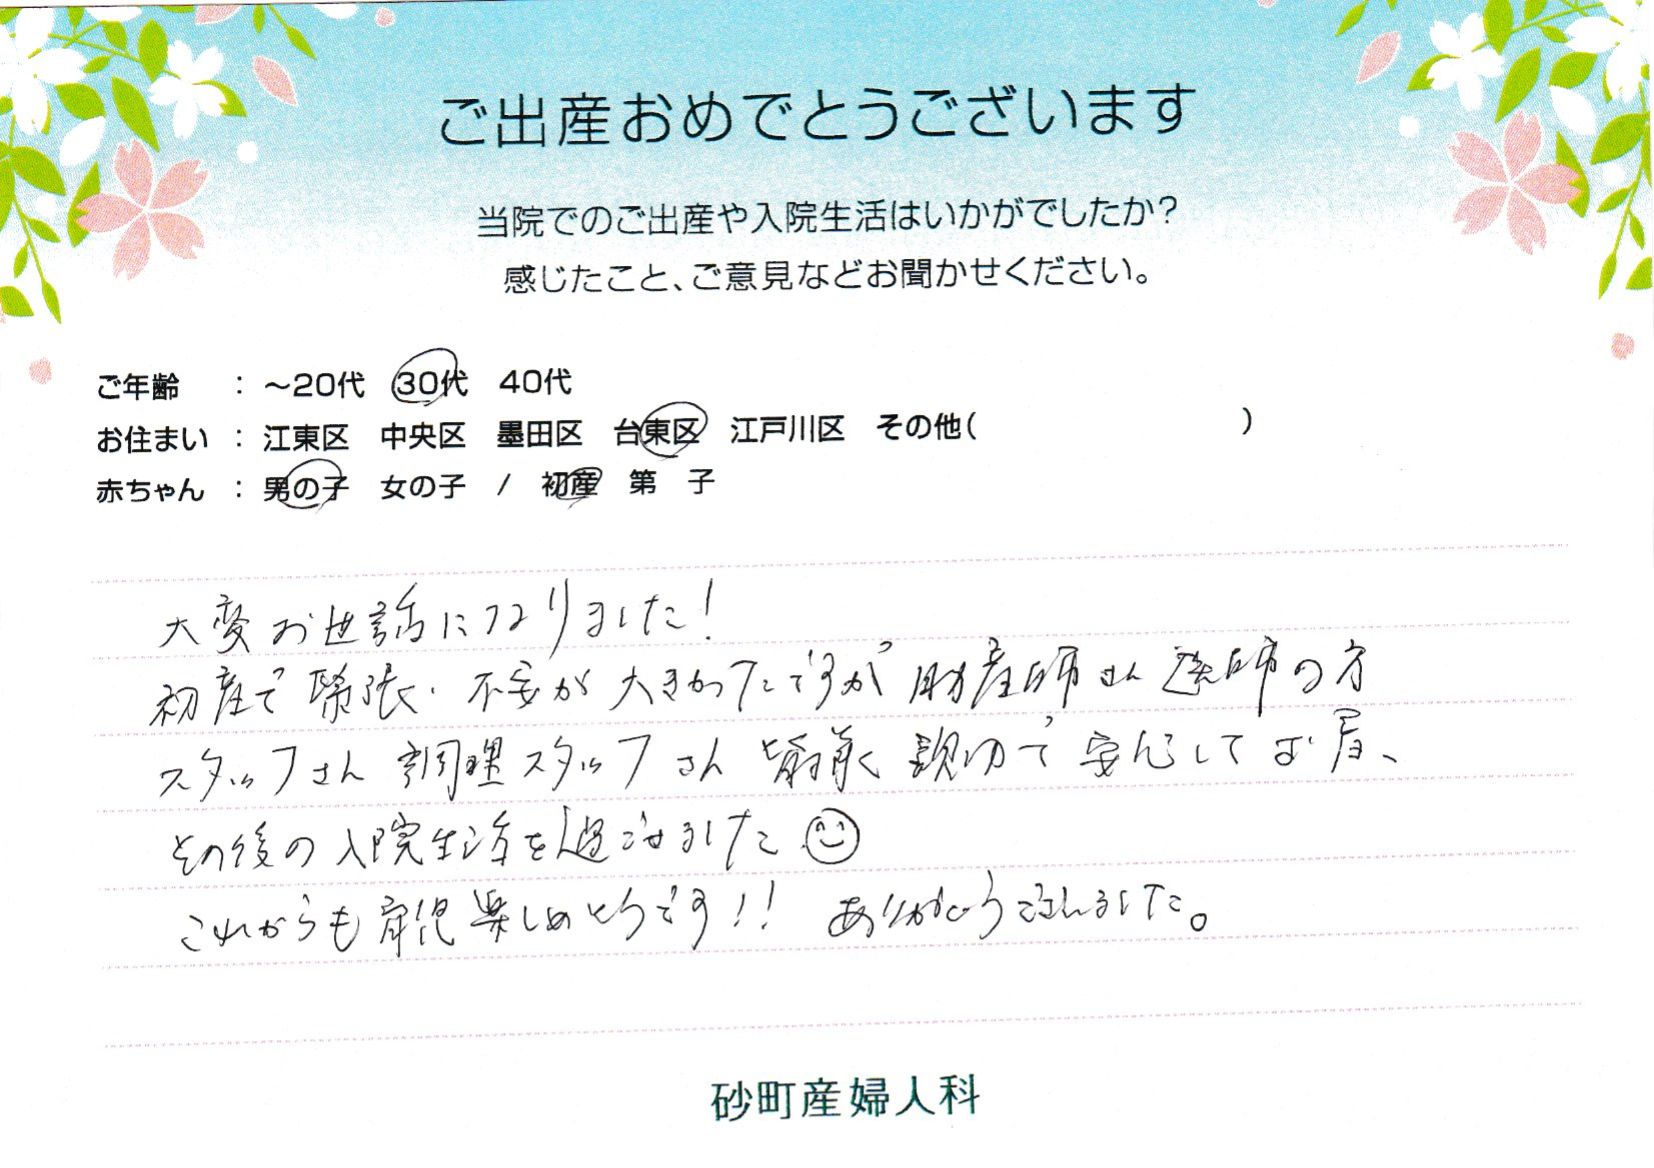 ご出産おめでとうございます
当院でのご出産や入院生活はいかがでしたか？
感じたこと、ご意見などお聞かせください。
ご年齢 ： ～20代 30代 40代
お住まい ： 江東区 中央区 墨田区 台東区 江戸川区 その他( )
赤ちゃん ： 男の子 女の子 / 初産 第 子
大変お世話になりました!
初産で緊張、不安が大きかったですが 助産師さん 医師の方
スタッフさん 調理スタッフさん 皆 親切で 安心して お産、
その後の入院生活を過ごせました
これからも育児楽しめそうです!! ありがとうございました。
砂町産婦人科